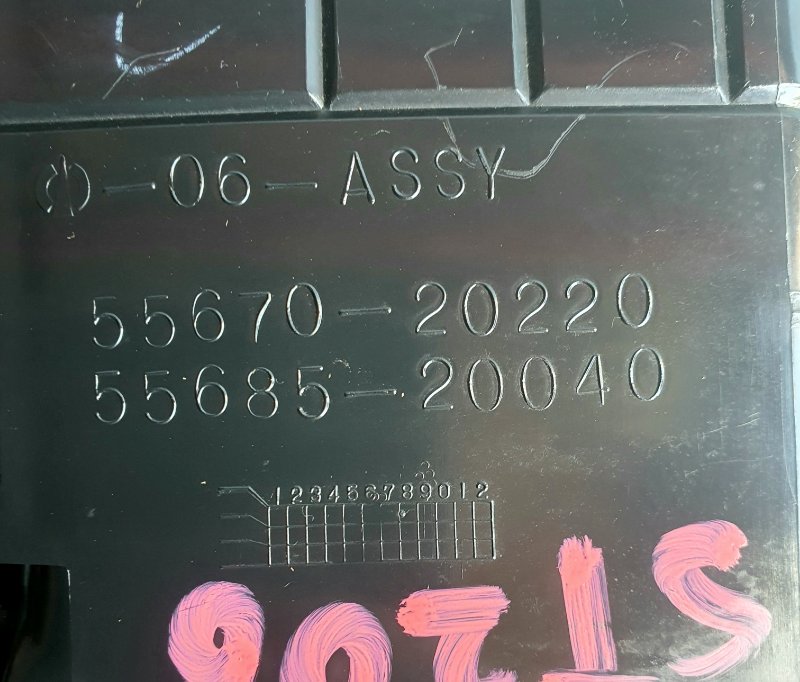 -06-ASSY
55670-20220
55685-20040
123456789012
ST206